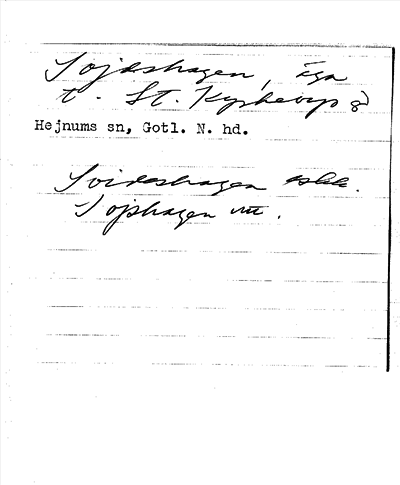 Sojdeshagen, äga
t. St. Kyrkebys
Hejnums sn, Gotl. N. hd.
Soideshagen
Sojshagen